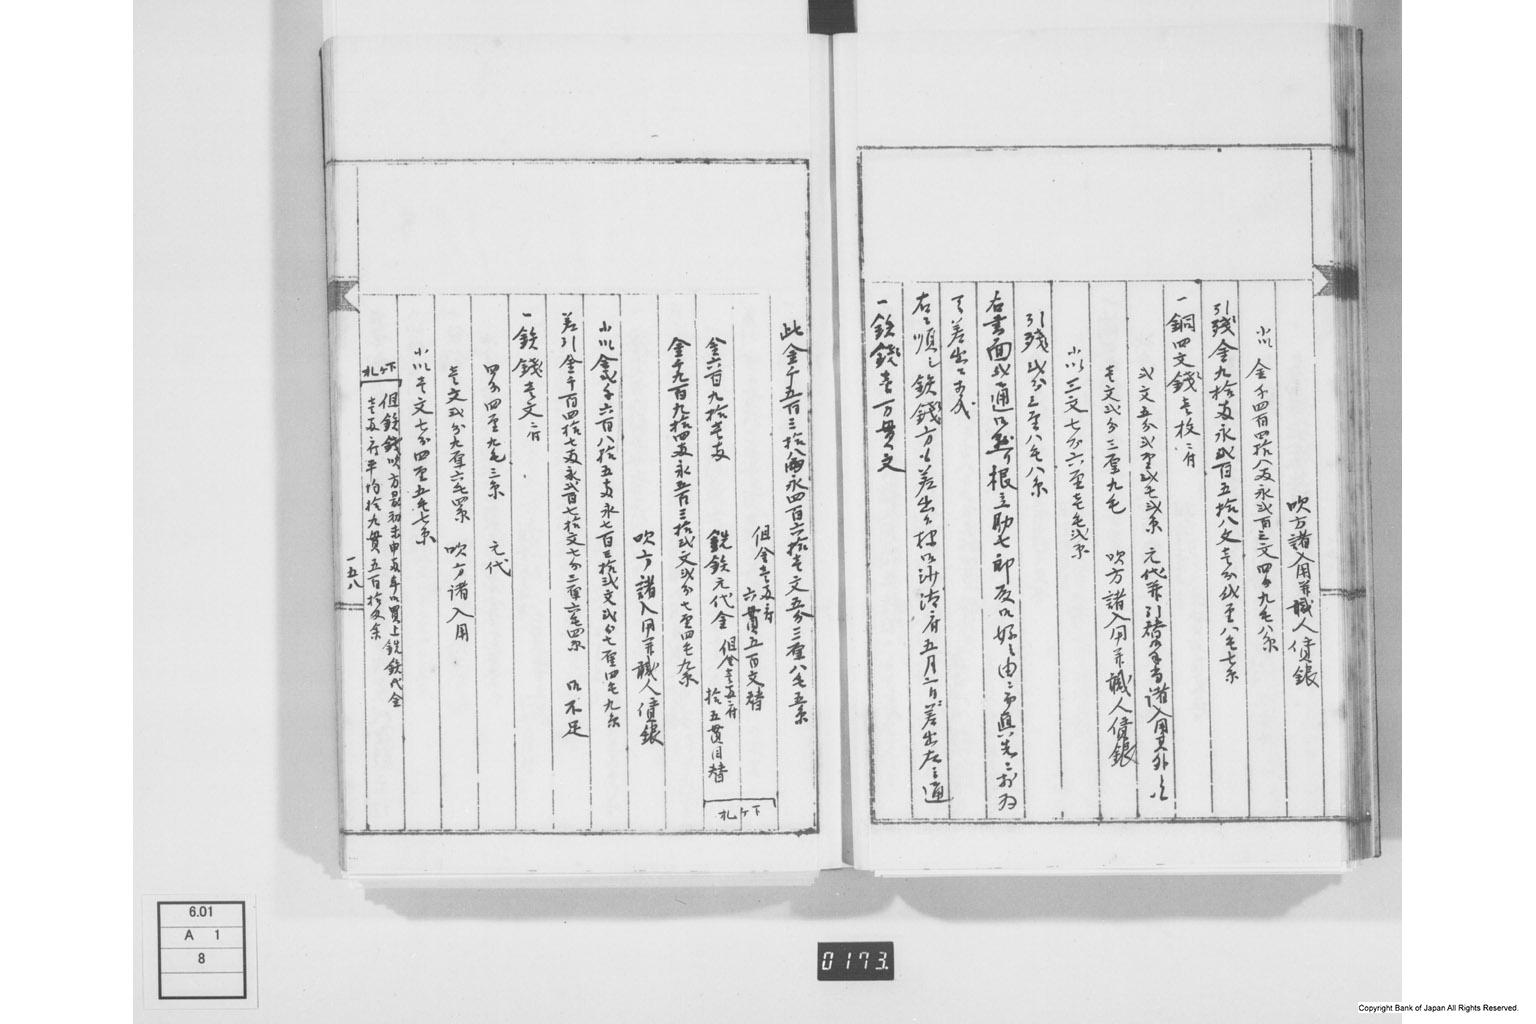 吹方諸入用并職人賃銀
小以 金千四百四拾八両永弐百三文四分九毛八糸
引残金九拾両永弐百五拾八文壱分弐厘八毛七糸
一銅四文銭壱枚ニ付
弐文五分弐厘弐毛弐糸 元代并引替手当諸入用其外共
壱文弐分三厘九毛 吹方諸入用并職人賃銀
小以三文七分六厘壱毛弐糸
引残弐分三厘八毛八糸
右書面弐通
右之順之鉄銭方も差出
一鉄銭壱万貫文
此金千五百三拾八両永四百六拾壱文五分三厘八毛五糸
但金壱両ニ付
六貫五百文替
金六百九拾壱両 銑鉄元代金 但金壱両ニ付
拾五貫目替
下ケ札
金千九百九拾四両永五百三拾弐文弐分七厘四毛九糸
吹方諸入用并職人賃銀
小以金弐千六百八拾五両永七百三拾弐文弐分七厘四毛九糸
差引金千百四拾七両永弐百七拾文七分三厘六毛四糸 御不足
一鉄銭壱文ニ付
四分四厘九毛三糸 元代
壱文弐分九厘六毛四糸 吹方諸入用
小以壱文七分四厘五毛七糸
下ケ札
但鉄銭吹方最初未申両年御買上銑鉄代金
壱両ニ付平均拾九貫五百拾匁余
一五八
6.01
A 1
8
0173.
Copyright Bank of Japan All Rights Reserved.